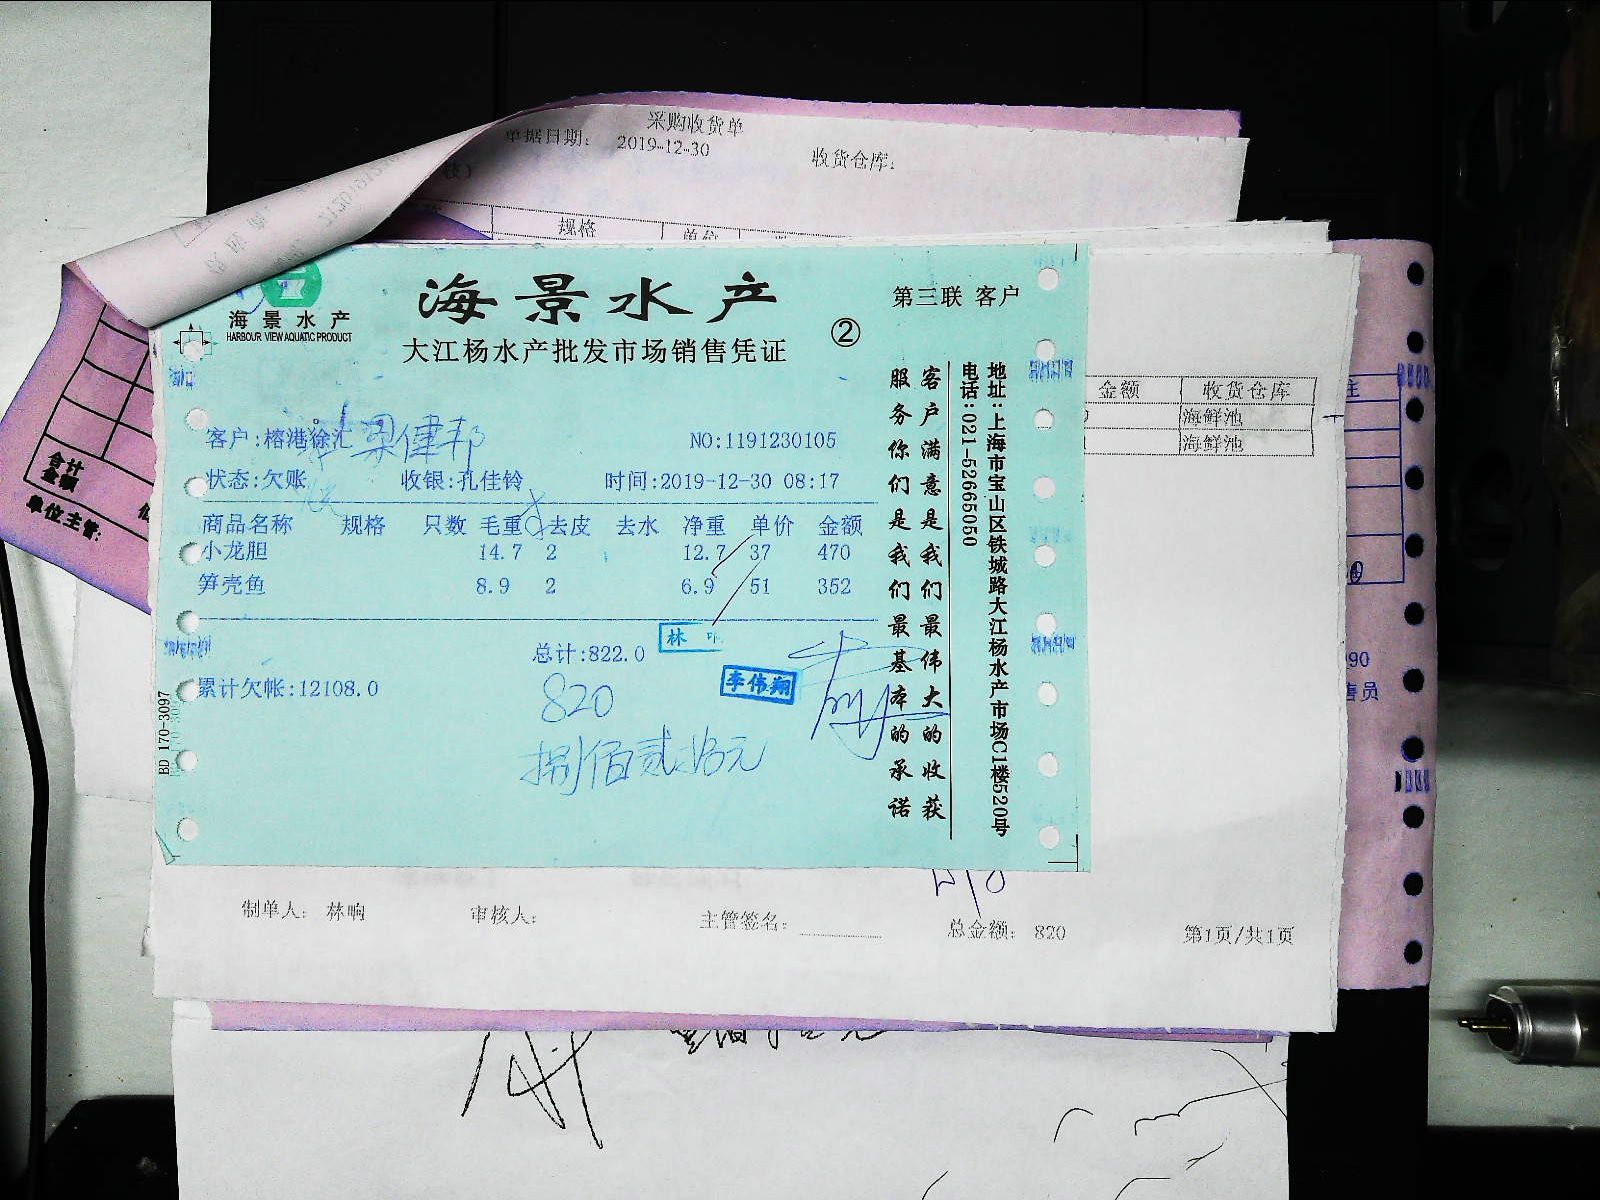 采购收货单
单据日期: 2019-12-30
收货仓库:
规格 单位
海景水产
HARBOUR VIEW AQUATIC PRODUCT
海景水产
大江杨水产批发市场销售凭证
②
第三联 客户
客户:榕港徐汇 梁健邦 NO:1191230105
状态:欠账 收银:孔佳铃 时间:2019-12-30 08:17
商品名称 规格 只数 毛重 去皮 去水 净重 单价 金额
小龙胆 14.7 2 12.7 37 470
笋壳鱼 8.9 2 6.9 51 352
总计:822.0
林
李伟翔
累计欠帐:12108.0
820
捌佰贰拾元
BD 170-3097
客户满意是我们最伟大的收获
服务你们是我们最基本的承诺
地址:上海市宝山区铁城路大江杨水产市场C1楼520号
电话:021-52665050
金额 收货仓库
海鲜池
海鲜池
合计
金额
单位主管:
90
售员
制单人: 林响 审核人: 主管签名: 总金额: 820 第1页/共1页